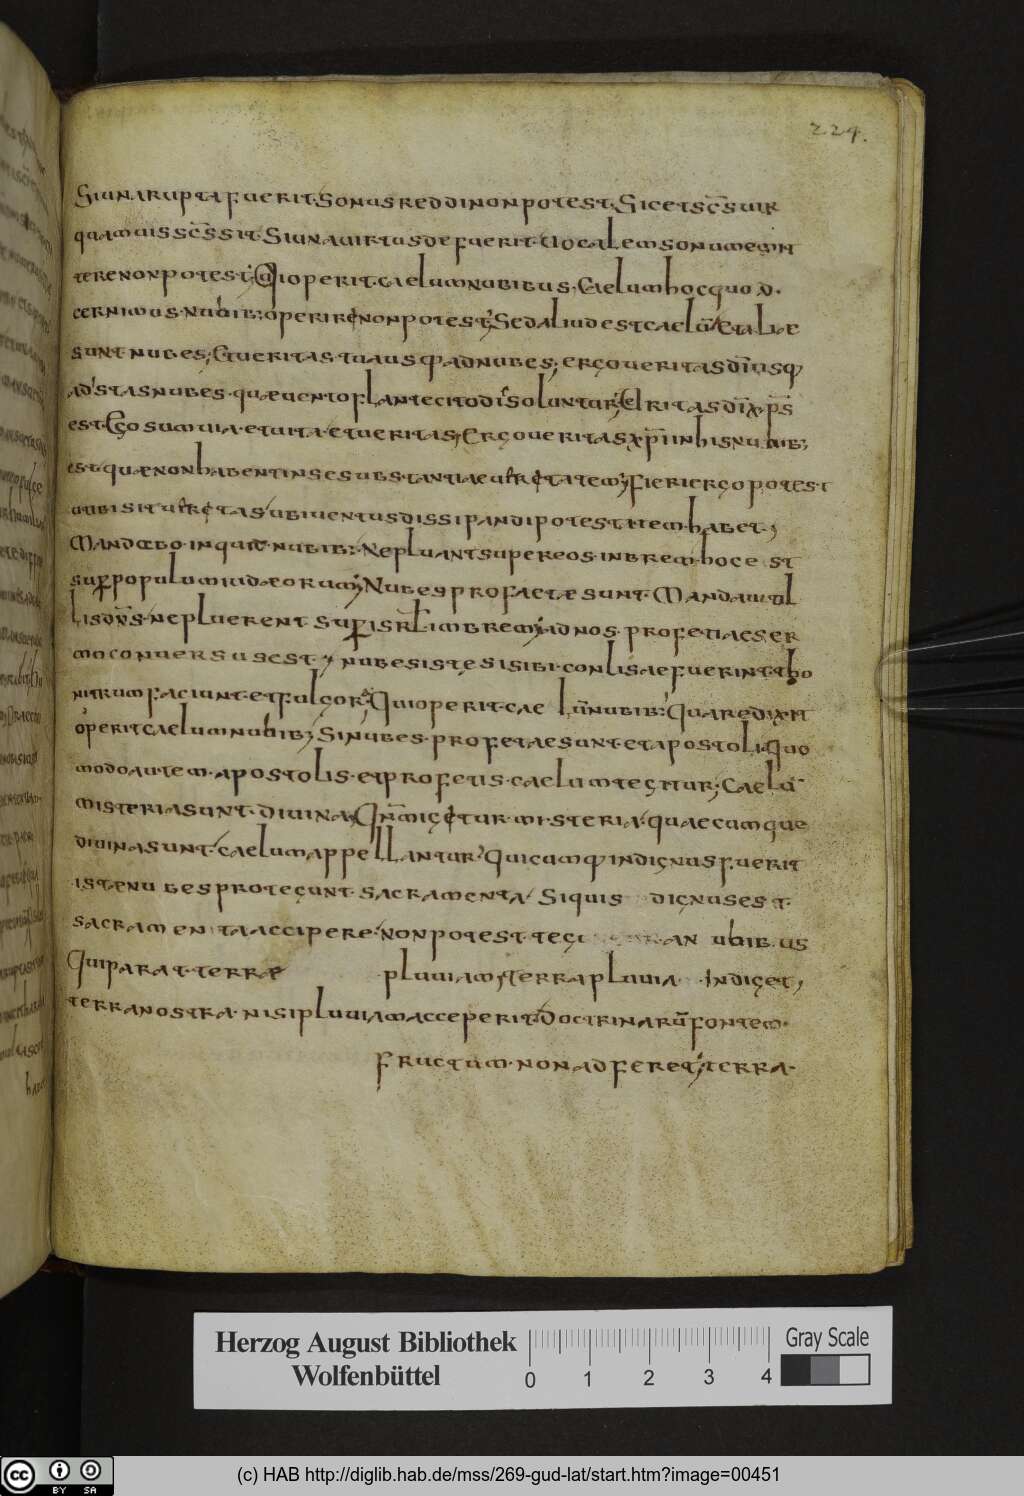 224.
Si una rupta fuerit. Sonus reddi non potest. Sic et sc̄s uir
quamuis sc̄s sit. Si una uirtus defuerit. Uocalem sonum emit
tere non potest; Qui operit. caelum nubibus. Caelum hoc quod.
cernimus. Nubib; operire non potest; Sed aliud est caelū. Et aliae
sunt nubes; Et ueritas tua usq ad nubes; ergo ueritas dī usq
ad istas nubes. quae uento flante cito dissoluntur; Ueritas dī xp̄s
est. Ego sum uia. et uita. et ueritas; Ergo ueritas xp̄i in his nubib;
est. quae non habent in se substantiae ueritatem; fieri ergo potest
ut ubi sit ueritas. ubi uentus dissipandi potestatem. habet;
Mandabo. inquit. nubib;. Ne pluant super eos. inbrem. hoc est
super populum iudaeorum; Nubes profaetae sunt. Mandauit il
lis dn̄s. ne pluerent super isrl imbrem; ad nos. profetiae ser
mo conuersus est. nubes iste si sibi. conlisae fuerint. tho
nitrum faciunt. et fulgor; Qui operit. cae lūnubib; Quare dixit
operit caelum nubib; Si nubes. profetae sunt. et apostoli. Quo
modo autem. apostolis. et profetis. caelum tegitur; Caelū
misteria sunt. diuina. misteria. quaecumque
diuina sunt. caelum appellantur. Quicumq indignus fuerit
ista nubes protegunt. sacramenta. Si quis dignus est.
sacramenta accipere. non potest. nubibus
Qui parat. terrae pluuiam; terra pluuia. indiget;
terra nostra. nisi pluuiam acceperit. Doctrinarū fontem.
fructum. non adferet; terra.
Herzog August Bibliothek
Wolfenbüttel
0 1 2 3 4
Gray Scale
cc BY SA
(c) HAB http://diglib.hab.de/mss/269-gud-lat/start.htm?image=00451